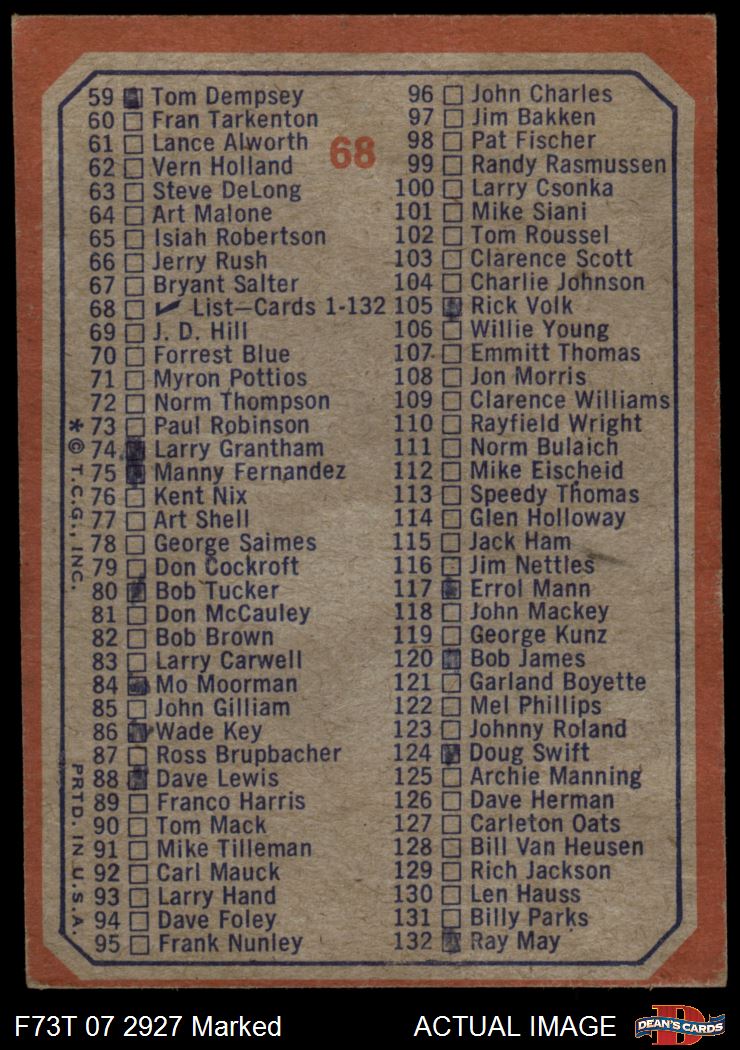 59 Tom Dempsey
60 Fran Tarkenton
61 Lance Alworth
62 Vern Holland
63 Steve DeLong
64 Art Malone
65 Isiah Robertson
66 Jerry Rush
67 Bryant Salter
68 ✓ List—Cards 1-132
69 J. D. Hill
70 Forrest Blue
71 Myron Pottios
72 Norm Thompson
73 Paul Robinson
74 Larry Grantham
75 Manny Fernandez
76 Kent Nix
77 Art Shell
78 George Saimes
79 Don Cockroft
80 Bob Tucker
81 Don McCauley
82 Bob Brown
83 Larry Carwell
84 Mo Moorman
85 John Gilliam
86 Wade Key
87 Ross Brupbacher
88 Dave Lewis
89 Franco Harris
90 Tom Mack
91 Mike Tilleman
92 Carl Mauck
93 Larry Hand
94 Dave Foley
95 Frank Nunley
68
96 John Charles
97 Jim Bakken
98 Pat Fischer
99 Randy Rasmussen
100 Larry Csonka
101 Mike Siani
102 Tom Roussel
103 Clarence Scott
104 Charlie Johnson
105 Rick Volk
106 Willie Young
107 Emmitt Thomas
108 Jon Morris
109 Clarence Williams
110 Rayfield Wright
111 Norm Bulaich
112 Mike Eischeid
113 Speedy Thomas
114 Glen Holloway
115 Jack Ham
116 Jim Nettles
117 Errol Mann
118 John Mackey
119 George Kunz
120 Bob James
121 Garland Boyette
122 Mel Phillips
123 Johnny Roland
124 Doug Swift
125 Archie Manning
126 Dave Herman
127 Carleton Oats
128 Bill Van Heusen
129 Rich Jackson
130 Len Hauss
131 Billy Parks
132 Ray May
* © T.C.G., INC. PRTD. IN U.S.A.
F73T 07 2927 Marked
ACTUAL IMAGE
D
DEAN'S CARDS